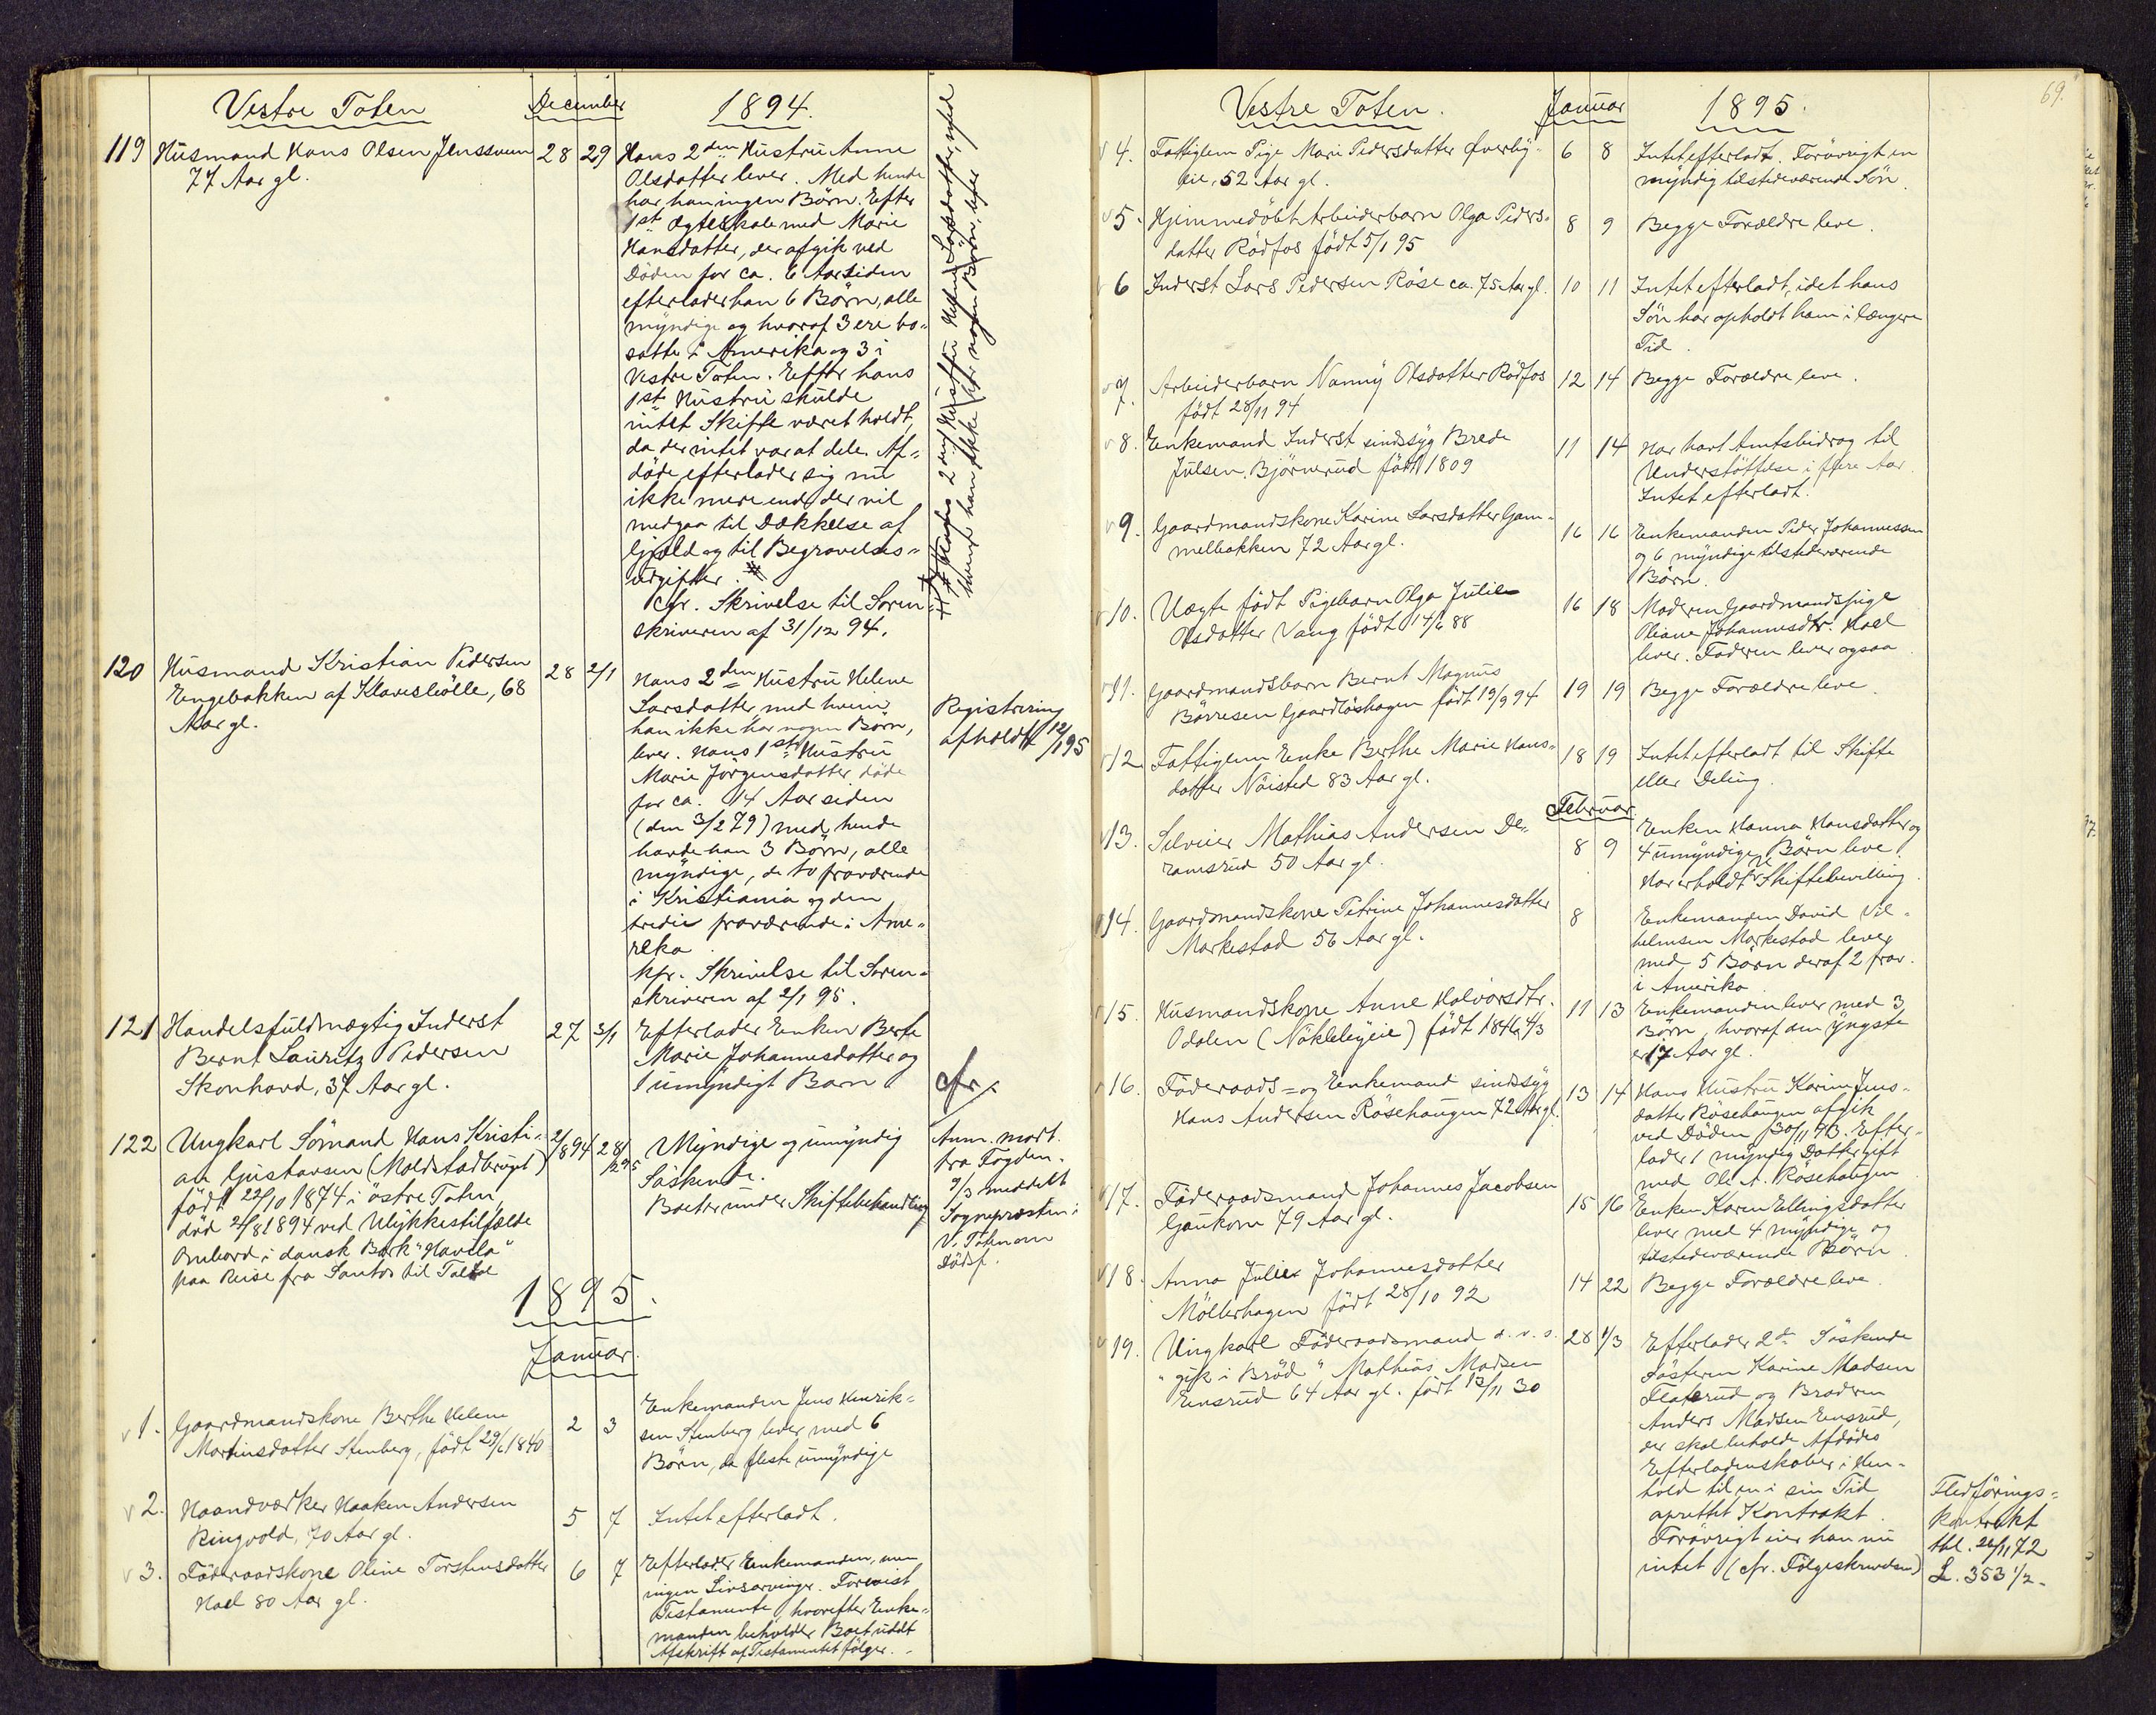 Vestre Toten December 1894.
119 Husmand Hans Olsen Jenssveen 28 29
77 Aar gl.
Hans 2den Hustru Anne
Olsdatter lever. Med hende
har han ingen Börn. Efter
1st Ægteskab med Marie
Hansdatter, der afgik ved
Döden for ca. 6 Aar siden
efterlader han 6 Börn, alle
myndige og hvoraf 3 ere bo-
satte i Amerika og 3 i
Vestre Toten. Efter hans
1st Hustru skulde
intet Skifte været holdt,
da der intet var at dele. Af-
döde efterlader sig nu
ikke mere end der vil
medgaa til Dækkelse af
Gjæld og til Begravelses-
udgifter.
cfr. Skrivelse til Soren-
skriveren af 31/12 94.
120 Husmand Kristian Pedersen 28 2/1
Engebakken af Klavesbölle, 68
Aar gl.
Hans 2den Hustru Helene
Larsdatter med hvem
han ikke har nogen Börn,
lever. Hans 1st Hustru
Marie Jörgensdatter döde
for ca. 14 Aar siden
(den 3/2 79) med hende
havde han 3 Börn, alle
myndige, de to fraværende
i Kristiania og den
tredie fraværende i Ame-
rika
kfr. Skrivelse til Soren-
skriveren af 2/1 95.
Registrering
afholdt 12/1 95
121 Handelsfuldmægtig Inderst 27 3/1
Bernt Lauritz Pedersen
Skonhovd, 37 Aar gl.
Efterlader Enken Berte
Marie Johannesdatter og
1 umyndigt Barn
cfr.
122 Ungkarl Sömand Hans Kristi- 2/8 94 28/2 95
an Gustavsen (Moldstadbruget)
födt 22/10 1874 i östre Toten,
död 2/8 1894 ved Ulykkestilfælde
Ombord i dansk Bark "Havila"
paa Reise fra Santos til Taltal
Myndige og umyndig
Söskende.
Boet er under Skiftebehandling
Anm. modt.
fra Fogden.
9/3 meddelt
Sognepresten i
V. Toten om
Dödsf.
1895.
Januar.
1. Gaardmandskone Berthe Helene 2 3
Martinsdatter Stenberg, födt 29/6 1840
Enkemanden Jens Henrik-
sen Stenberg lever med 6
Börn, de fleste umyndige
2. Haandværker Haaken Andersen 5 7
Ringvold, 70 Aar gl.
Intet efterladt.
3. Föderaadskone Oline Torstensdatter 6 7
Hoel 80 Aar gl.
Efterlader Enkemanden, men
ingen Livsarvinger. Forevist
Testamente, hvorefter Enke-
manden beholder Boet uddt
Afskrift af Testamentet fölger.
69.
Vestre Toten. Januar 1895.
4. Fattiglem Pige Mari Pedersdatter Överby- 6 8
eie, 52 Aar gl.
Intet efterladt. Forövrigt en
myndig tilstedeværende Sön.
5. Hjemmedöbt Arbeiderbarn Olga Peders- 8 9
datter Rödfos födt 5/1 95
Begge Forældre leve.
6 Inderst Lars Pedersen Röse ca. 75 Aar gl. 10 11
Intet efterladt, idet hans
Sön har opholdt ham i længere
Tid.
7. Arbeiderbarn Nanny Olsdatter Rödfos 12 14
födt 28/11 94
Begge Forældre leve.
8. Enkemand Inderst sindssyg Brede 11 14
Julsen Björnerud födt 1809
Har havt Amtsbidrag til
Understöttelse i flere Aar.
Intet efterladt.
9. Gaardmandskone Karine Larsdatter Gam- 16 16
melbakken 72 Aar gl.
Enkemanden Peder Johannessen
og 6 myndige tilstedeværende
Börn.
10. Uægte födt Pigebarn Olga Julie 16 18
Olsdatter Vang födt 14/6 88
Moderen Gaardmandspige
Oliane Johannesdtr. Hoel
lever. Faderen lever ogsaa
11. Gaardmandsbarn Bernt Magnus 19 19
Börresen Gaardlöshagen födt 19/9 94
Begge Forældre leve.
12 Fattiglem Enke Berthe Marie Hans- 18 19
datter Nöisted 83 Aar gl.
Intet efterladt til Skifte
eller Deling.
Februar.
13. Selveier Mathias Andersen De- 8 9
ramsrud 50 Aar gl.
Enken Hanna Hansdatter og
4 umyndige Börn leve
Har erholdt Skiftebevilling.
14. Gaardmandskone Petrine Johannesdatter 8
Markestad 56 Aar gl.
Enkemanden David Vil-
helmsen Markestad lever
med 5 Börn deraf 2 frav.
i Amerika
15. Husmandskone Anne Halvorsdtr. 11 13
Odalen (Nökleleyeie) födt 1846 4/3
Enkemanden lever med 3
Börn, hvoraf den yngste
er 17 Aar gl.
16. Föderaads- og Enkemand sindssyg 13 14
Hans Andersen Rösehaugen 72 Aar gl.
Hans Hustru Karin Jens-
datter Rösehaugen afgik
ved Döden 30/11 93. Efter-
lader 1 myndig Datter gift
med Ole A. Rösehaugen
17. Föderaadsmand Johannes Jacobsen 15 16
Gaukom 79 Aar gl.
Enken Karen Ellingsdatter
lever med 4 myndige og
tilstedeværende Börn.
18. Anna Julie Johannesdatter 14 22
Möllerhagen födt 28/10 92
Begge Forældre leve.
19. Ungkarl Föderaadsmand d. v. s. 28 1/3
"gik i Bröd" Mathias Madsen
Eensrud 64 Aar gl. födt 13/11 30
Efterlader 2de Söskende
Sösteren Karine Madsen
Flaterud og Broderen
Anders Madsen Eensrud,
der skal beholde Afdödes
Efterladenskaber i Hen-
hold til en i sin Tid
oprettet Kontrakt.
Forövrigt eier han nu
intet (cfr. Fölgeskrivelsen)
Fledförings-
kontrakt
thl. 22/11 72
L. 353 1/2-